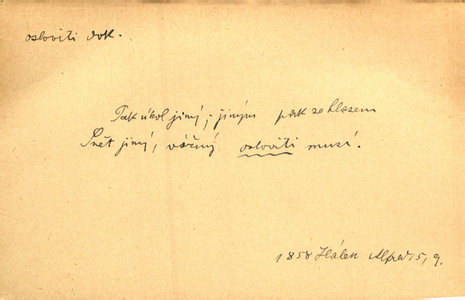 osloviti dok.
Tak úkol jiný, jiným pak ze hlasem
Svět jiný, vážný osloviti musí.
1858 Hálek Alfred 5, 9.